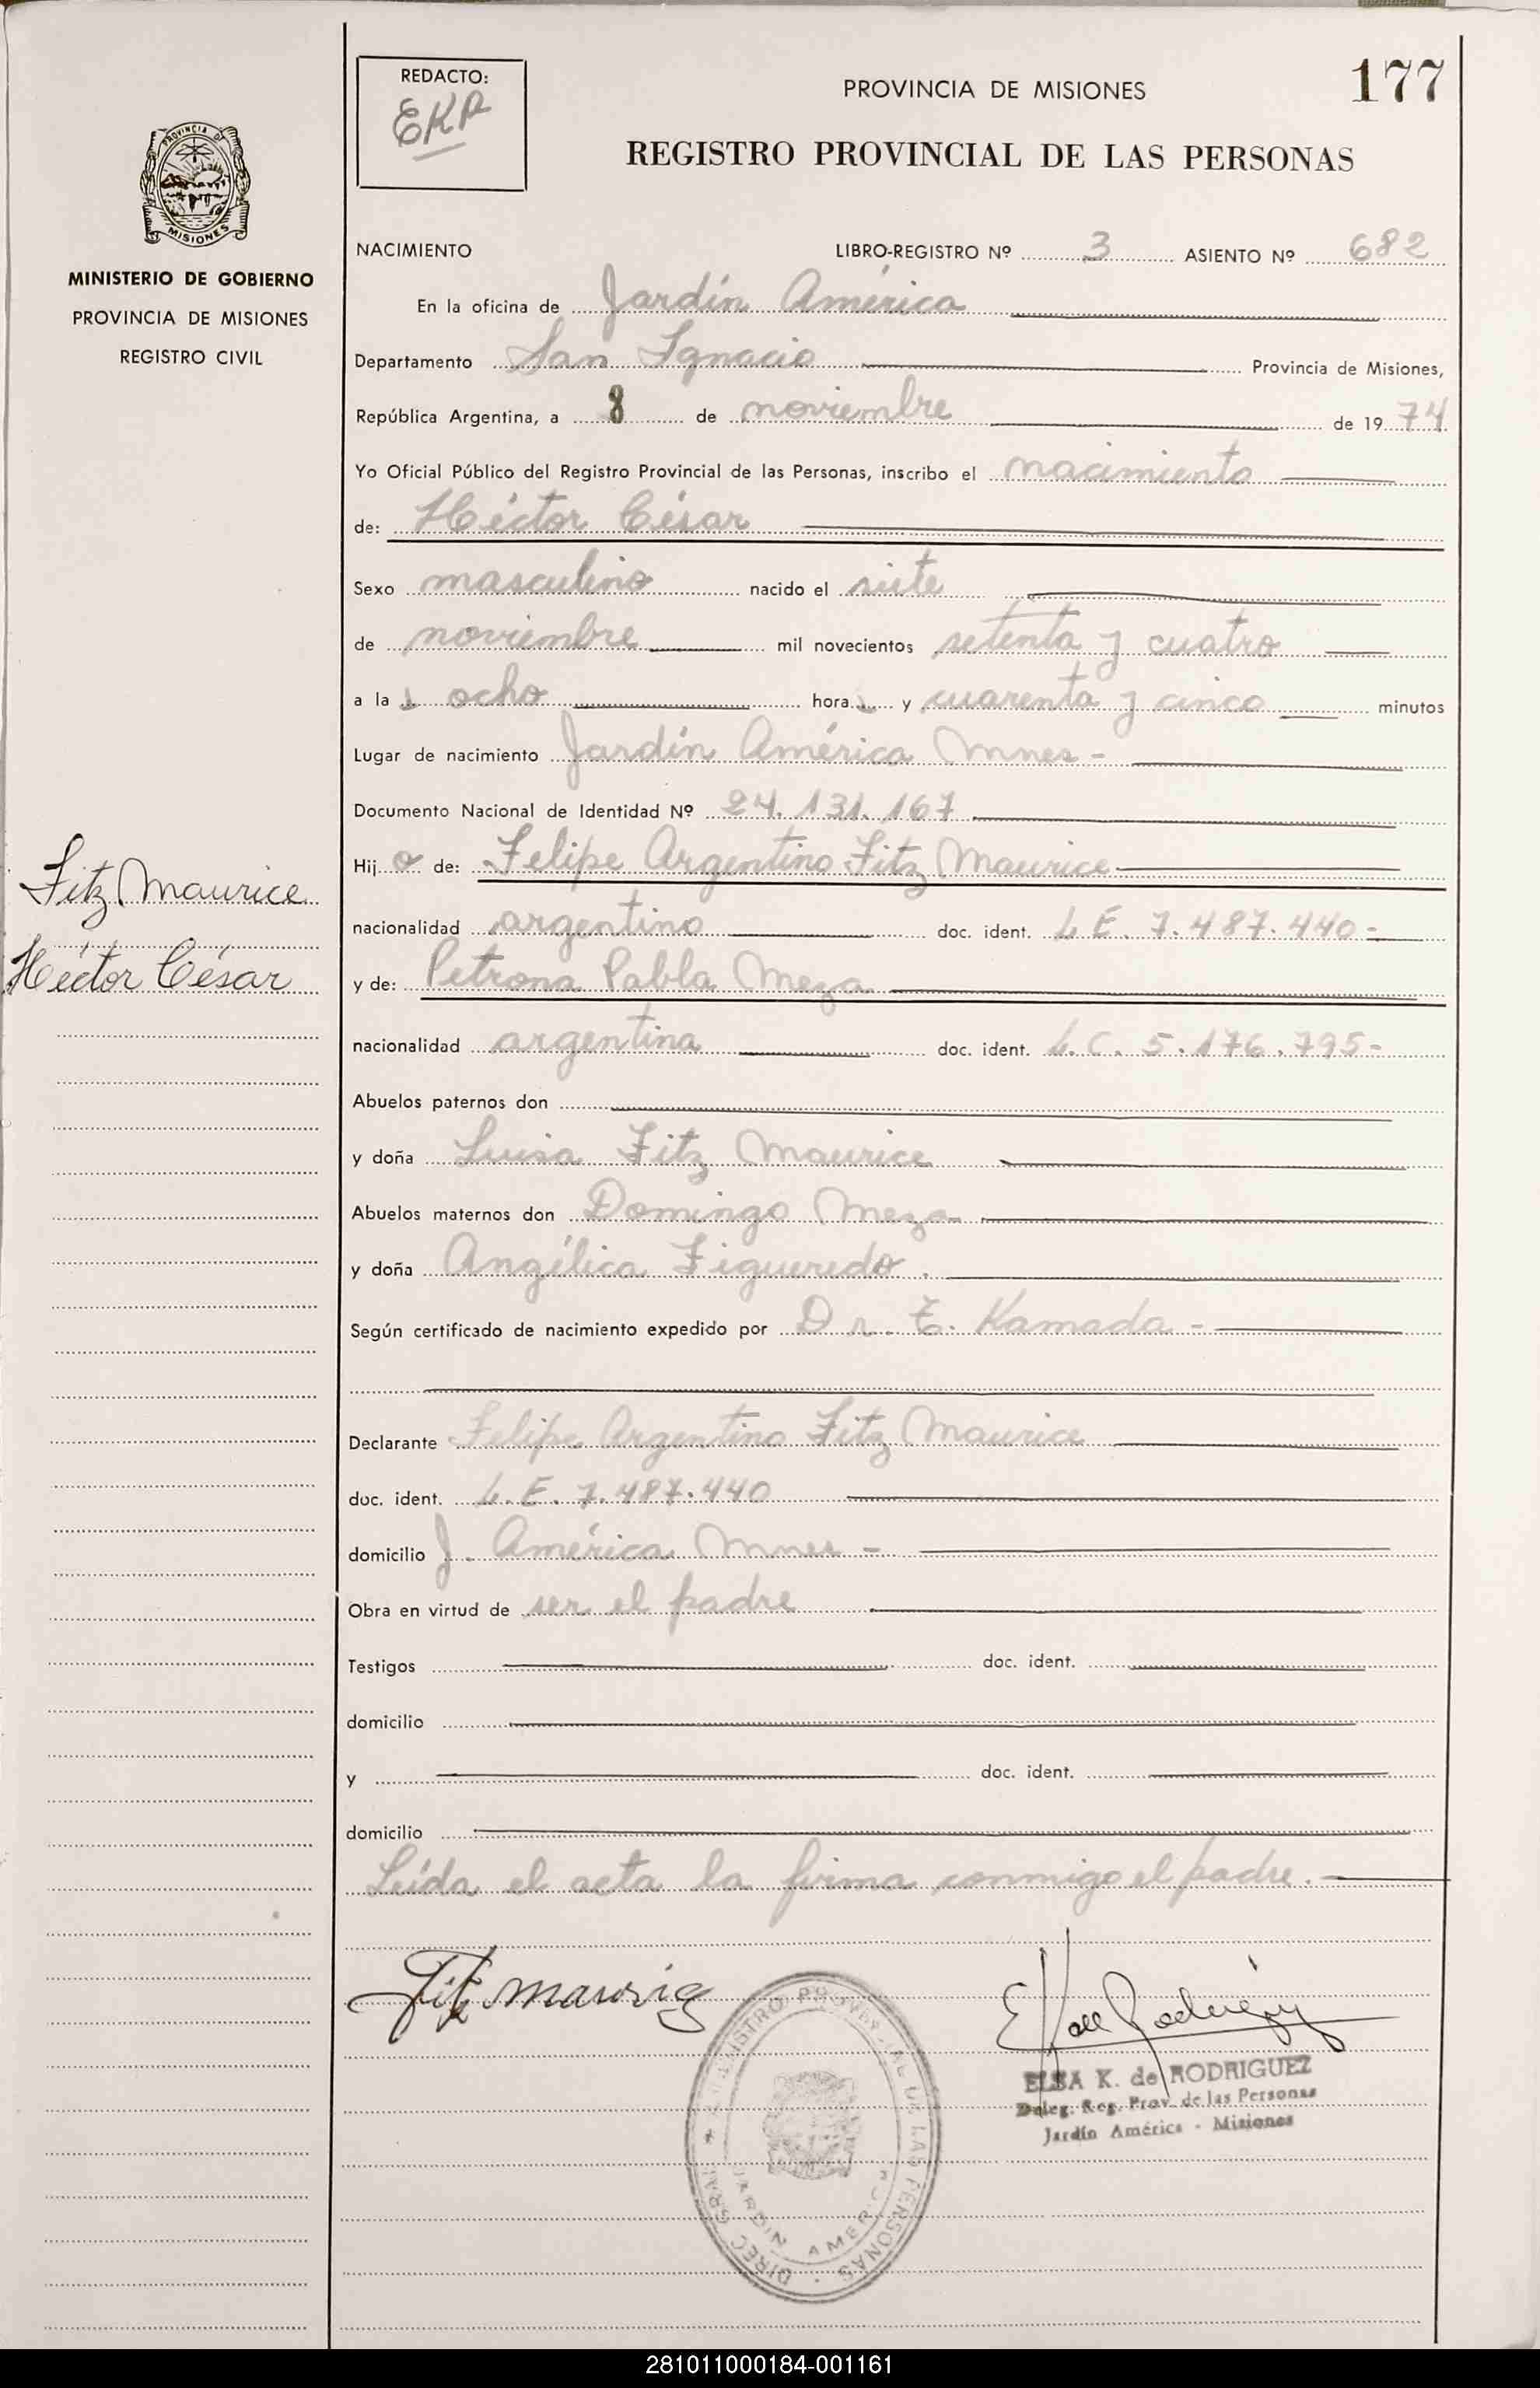 REDACTO:
EKR
PROVINCIA DE MISIONES
177
REGISTRO PROVINCIAL DE LAS PERSONAS
PROVINCIA DE
MISIONES
MINISTERIO DE GOBIERNO
PROVINCIA DE MISIONES
REGISTRO CIVIL
NACIMIENTO LIBRO-REGISTRO Nº 3 ASIENTO Nº 682
En la oficina de Jardín América
Departamento San Ignacio Provincia de Misiones,
República Argentina, a 8 de noviembre de 1974
Yo Oficial Público del Registro Provincial de las Personas, inscribo el nacimiento
de: Héctor César
Sexo masculino nacido el siete
de noviembre mil novecientos setenta y cuatro
a las ocho horas y cuarenta y cinco minutos
Lugar de nacimiento Jardín América Mnes -
Documento Nacional de Identidad Nº 24.131.167
Hijo de: Felipe Argentino Fitz Maurice
Fitz Maurice
nacionalidad argentino doc. ident. L.E. 7.487.440-
Héctor César
y de: Petrona Pabla Meza
nacionalidad argentina doc. ident. L.C. 5.176.795-
Abuelos paternos don
y doña Luisa Fitz Maurice
Abuelos maternos don Domingo Meza
y doña Angélica Figueredo.
Según certificado de nacimiento expedido por Dr. T. Kamada -
Declarante Felipe Argentino Fitz Maurice
doc. ident. L.E. 7.487.440
domicilio J. América Mnes -
Obra en virtud de ser el padre
Testigos doc. ident.
domicilio
y doc. ident.
domicilio
Leída el acta la firma conmigo el padre.
Fitz Mauric
ELSA K. de RODRIGUEZ
Deleg. Reg. Prov. de las Personas
Jardín América - Misiones
DIREC GRAL REGISTRO PROVINCIAL DE LAS PERSONAS
JARDIN AMERICA
281011000184-001161